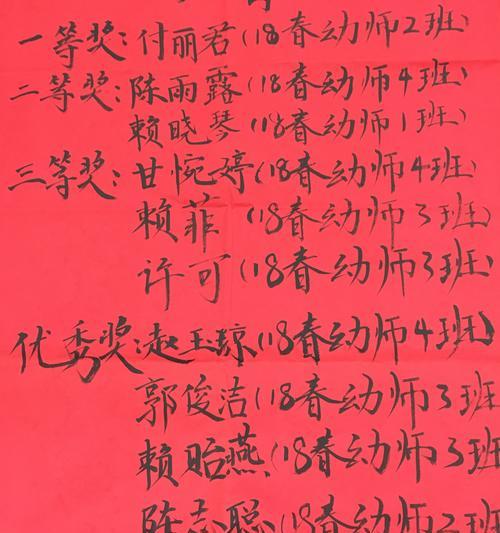 一等奖:付丽君(18春幼师2班)
二等奖:陈雨露(18春幼师4班)
赖晓琴(18春幼师1班)
三等奖:甘惋婷(18春幼师4班)
赖菲(18春幼师3班)
许可(18春幼师3班)
优秀奖:赵玉琼(18春幼师4班)
郭俊洁(18春幼师3班
赖贻燕(18春幼师3班
陈志聪(18春幼师2班